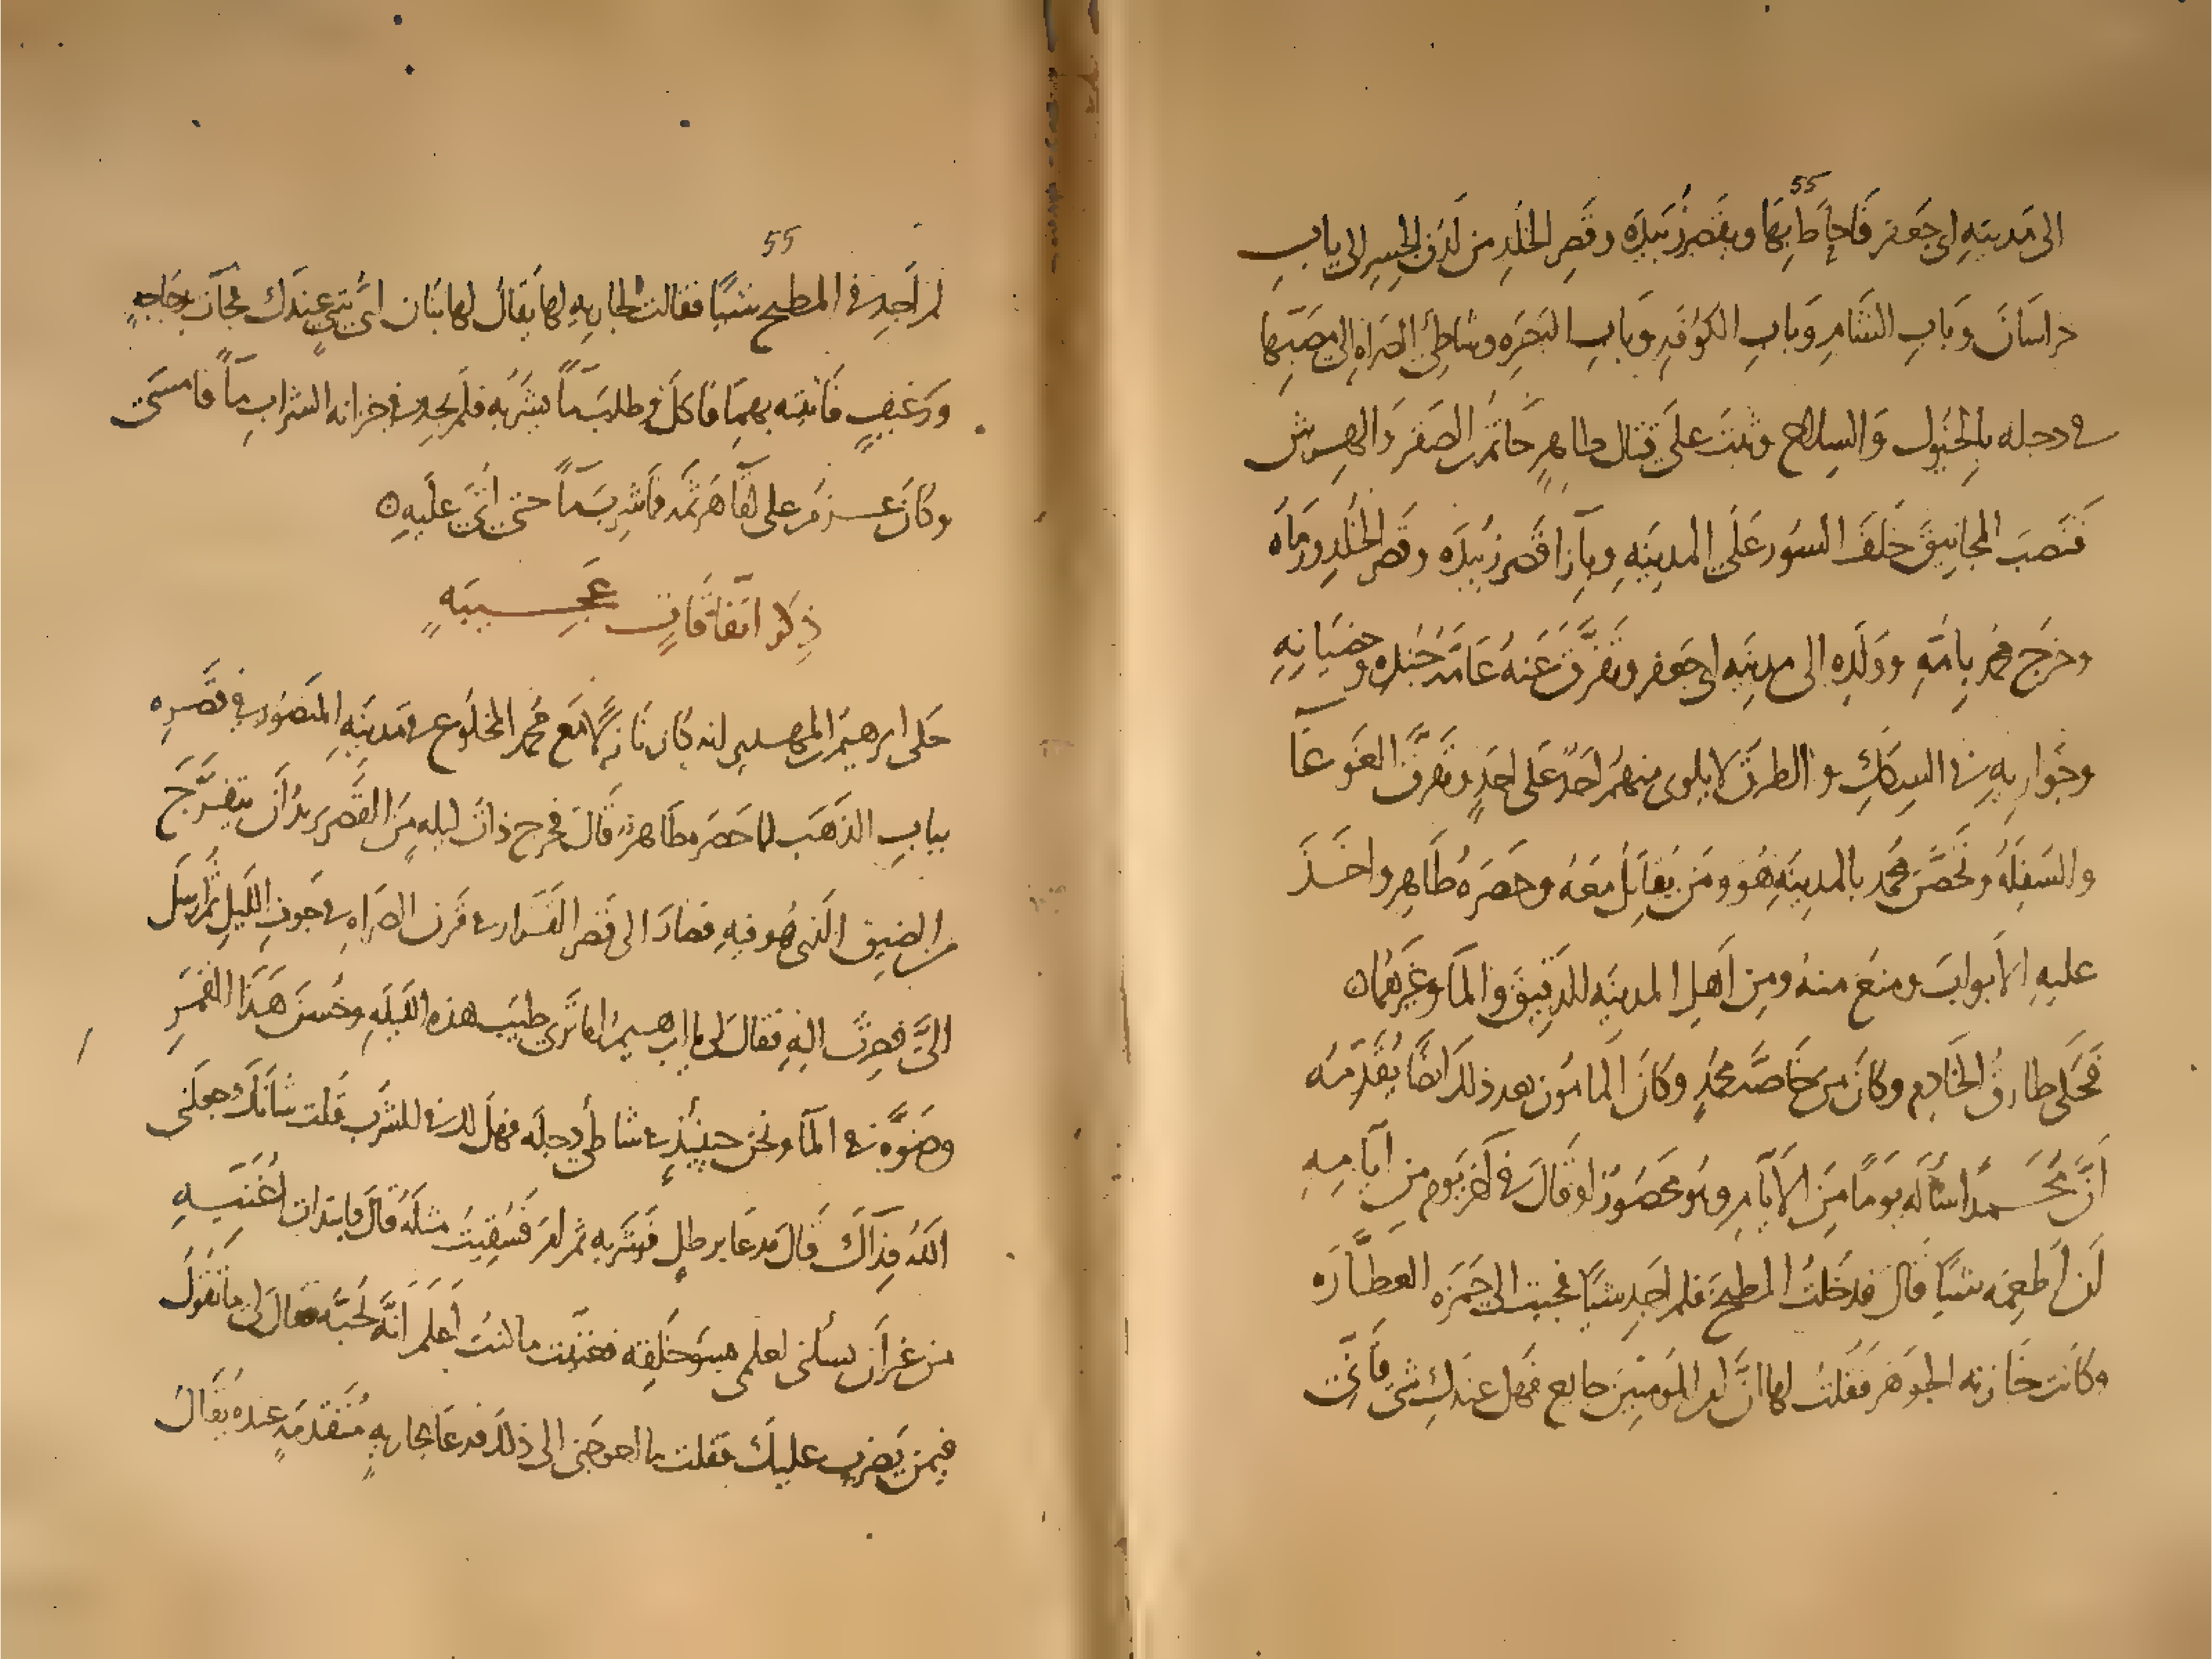 55
الى مَدينَةِ ابى جَعفر فَاحاطَ بِهَا وبِقَصر زُبَيدَه وقَصرِ الخُلدِ من لَدُن الجِسرِ الى بابِ
خراسَانَ وبَابِ الشَّام وَبابِ الكُوفَةِ وَبابِ البَصَره وشاطِئ الصَراهِ الى مَصَبّها
فى دجله بالخيُول وَالسِلاحِ وثبتَ علَى قتال طاهرٍ حاتمُ بن الصَقر وَالهِرش
فَنَصَبَ المجانيقَ خَلفَ السُور عَلَى المدينَهِ وبِازا قَصر زُبَيدَه وقَصر الخُلدِ ورَمَاه
وخرَج محمد بِامّهِ ووَلَدِه الى مدينَه ابى جَعفر وتفرَّقَ عَنهُ عَامّه جُندِه وخصيَانِهِ
وجَواريهِ فى السِكَكِ والطرق لا يلوى منهُم احَدٌ عَلى احَدٍ وتفرقَ الغَوغَا
والسَفِلَهُ وتحصَّنَ محمّد بالمدينَهِ هُوَ ومَن يُقاتِلُ مَعَهُ وحصَرَهُ طَاهِر واخَذَ
عليهِ الابوابَ ومنعَ منهُ ومِن اَهلِ المدينَه الدَقيقَ والمآ وغَيرَهُما ه
فَحَكى طارقُ الخَادِم وكانَ مِن خَاصَّه محمّدٍ وكانَ المامُون بعد ذلك ايضًا يُقَدِّمُه
اَنَّ مُحَمّداً سَأله يَومًا مِنَ الاَيّام وهُو مَحصُورٌ او قَالَ فى آخر يَوم مِن ايّامِهِ
اَن اُطعِمَه شَيًا قَالَ فدخَلتُ المطبخَ فلم اجد شيًا فجيت الى جَمرَه العَطّارَه
وكانت خَازنه الجَوهَر فقُلتُ لها انَّ امير المُومنينَ جايع فَهل عندكِ شى فَانّى
55
لم اَجِد فى المطبخ شيًا فقالت لجاريهٍ لها يقالُ لها بنان اىّ شئٍ عِندَك فجآت بدجَاجهٍ
ورَغيفٍ فَاتيته بهمَا فاَكلَ وطلبَ مآً يشرَبُه فلم يُوجد فى خزانه الشرابِ مآً فامسَى
وكانَ عَزمَ على لقَآ هَرثَمه فما شرِبَ مآً حتى اُتِىَ عليهِ ه
ذِكرُ اتّفَاقَاتٍ عَجِيبَهٍ
حَكى ابرهيمُ بن المهدى انه كان نَازلًا مَع محمد المخلُوع فى مَدينَهِ المنصُور فى قَصرِه
ببابِ الذهَب لما حَصَره طَاهرٌ قَالَ فخرج ذاتَ ليلهٍ مِنَ القَصر يريدُ اَن يتفرَّجَ
من الضيقِ الذى هُو فيهِ فصَارَ الى قَصر القَرار فى قَرن الصَراهِ فى جَوفِ اللَيلِ ثُمَّ ارسَل
الىَّ فصِرتُ اليهِ فقَالَ لى يا ابرهيمُ اما ترى طيبَ هذه الليلَهِ وحُسنَ هَذا القَمَرِ
وضَوّه فى المآ ونحن حينَئِذٍ فى شاطى دجلَه فهَل لك فى الشرب قلت شانَك جعَلنى
اللهُ فِدَآكَ قال فدعَا برطلٍ فَشَربه ثم امرَ فَسُقِيتُ مثلَهُ قَالَ فابتدات اُغَنّيهِ
من غير اَن يسئلنى لعلمى بسُو خلقِه فغنّيت ما كنتُ اَعلَم انَّه يُحبّه فقال لى ما تَقُولُ
فيمَن يَضرب عليكَ فقلت ما احوَجَنى الى ذلك فدعَا بجاريهٍ مُتَقدّمَهٍ عندَهُ يُقالُ